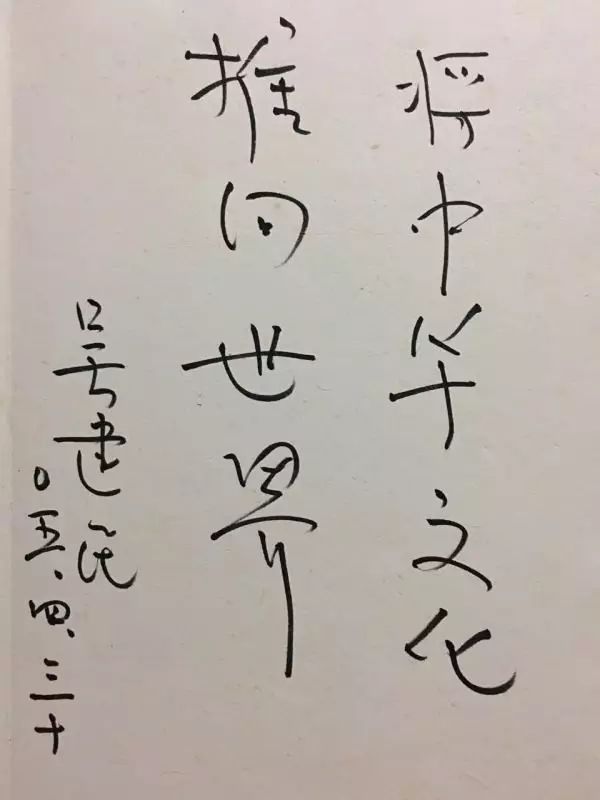 将中华文化
推向世界
吴建民
〇五.四.三十